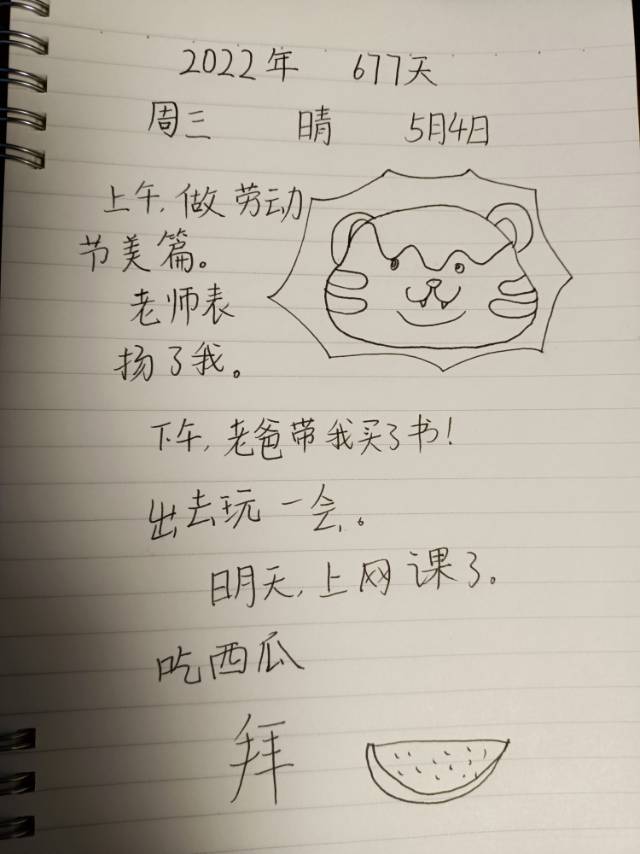 2022年 677天
周三 晴 5月4日
上午,做劳动
节美篇。
老师表
扬了我。
下午,老爸带我买了书!
出去玩一会。
明天,上网课了。
吃西瓜
拜